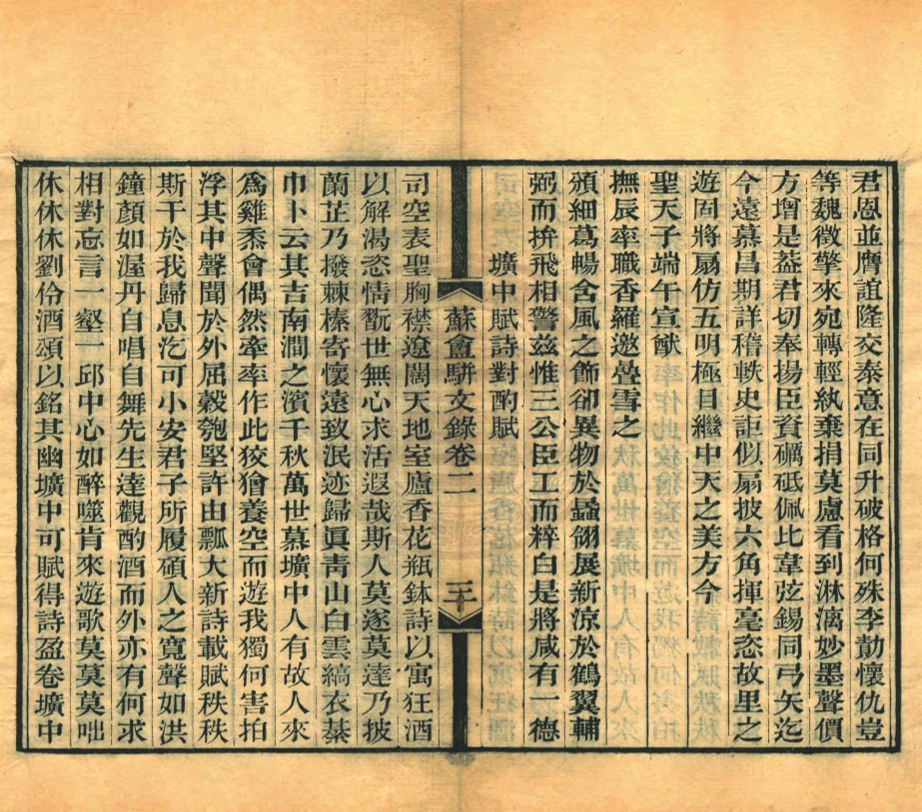 君恩並膺誼隆交泰意在同升破格何殊李勣懷仇豈
等魏徵擎來宛轉輕紈棄捐莫慮看到淋漓妙墨聲價
方增是葢君切奉揚臣資礪砥佩比韋弦錫同弓矢迄
今遠慕昌期詳稽軼史詎似扇披六角揮毫恣故里之
遊固將扇仿五明極目繼中天之美方今
聖天子端午宣猷
撫辰率職香羅邀疊雪之
頒細葛暢含風之飾卻異物於蟲翎展新涼於鶴翼輔
弼而拚飛相警兹惟三公臣工而粹白是將咸有一德
壙中賦詩對酌賦
蘇盦駢文錄卷二
三十
司空表聖胸襟遼闊天地室廬香花瓶鉢詩以寓狂酒
以解渴恣情翫世無心求活遐哉斯人莫遂莫達乃披
蘭芷乃撥棘榛寄懷遠致泯迹歸眞靑山白雲縞衣綦
巾卜云其吉南澗之濱千秋萬世慕壙中人有故人來
爲雞黍會偶然牽率作此狡獪養空而遊我獨何害拍
浮其中聲聞於外屈穀匏堅許由瓢大新詩載賦秩秩
斯干於我歸息汔可小安君子所履碩人之寬聲如洪
鐘顏如渥丹自唱自舞先生達觀酌酒而外亦有何求
相對忘言一壑一邱中心如醉噬肯來遊歌莫莫莫咄
休休休劉伶酒頌以銘其幽壙中可賦得詩盈卷壙中